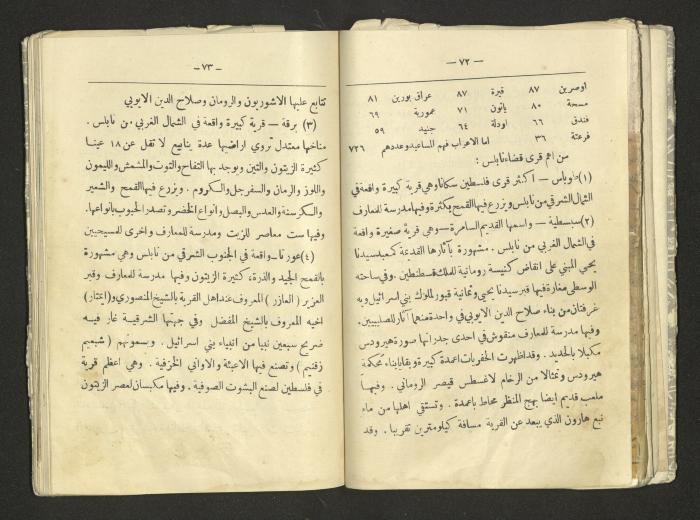 — ٧٢ —
اوصرين ٨٧ قيرة ٨٧ عراق بورين ٨١
مسحة ٨٠ يانون ٧١ عمورية ٦٩
فندق ٦٦ اودلة ٦٤ جنيد ٥٩
فرعتة ٣٦ اما الاعراب فهم المساعيد وعددهم ٧٢٦
من اهم قرى قضاء نابلس :
(١) طوباس — اكثر قرى فلسطين سكانا وهي قرية كبيرة واقعة في
الشمال الشرقي من نابلس ويزرع فيها القمح بكثرة وفيها مدرسة للمعارف
(٢) سبسطية — واسمها القديم السامرة — وهي قرية صغيرة واقعة
في الشمال الغربي من نابلس . مشهورة بآثارها القديمة كمسجد سيدنا
يحيى المبني على انقاض كنيسة رومانية للملك قسطنطين . وفي ساحته
الوسطى مغارة فيها قبر سيدنا يحيى وثمانية قبور لملوك بني اسرائيل وبه
غرفتان من بناء صلاح الدين الايوبي في واحدة منهما آثار للصليبيين .
وفيها مدرسة للمعارف منقوش في احدى جدرانها صورة هيرودس
مكبلا بالحديد . وقد اظهرت الحفريات اعمدة كبيرة وبقايا بناء محكمة
هيرودس وتمثالا من الرخام لاغسطس قيصر الروماني . وفيها
ملعب قديم ايضا بهج المنظر محاط باعمدة . وتستقي اهلها من ماء
نبع هارون الذي يبعد عن القرية مسافة كيلومترين تقريبا . وقد
— ٧٣ —
تتابع عليها الاشوريون والرومان وصلاح الدين الايوبي
(٣) برقة — قرية كبيرة واقعة في الشمال الغربي من نابلس .
مناخها معتدل تروي اراضيها عدة ينابيع لا تقل عن ١٨ عينا
كثيرة الزيتون والتين ويوجد بها التفاح والتوت والمشمش والليمون
واللوز والرمان والسفرجل والكروم . ويزرع فيها القمح والشعير
والكرسنة والعدس والبصل وانواع الخضر وتصدر الحبوب بانواعها .
وفيها ست معاصر للزيت ومدرسة للمعارف واخرى للمسيحيين
(٤) عورتا — واقعة في الجنوب الشرقي من نابلس وهي مشهورة
بالقمح الجيد والذرة ، كثيرة الزيتون وفيها مدرسة للمعارف وقبر
العزير ( العازر ) المعروف عند اهل القرية بالشيخ المنصوري و(ايتار)
اخيه المعروف بالشيخ المفضل وفي جهتها الشرقية غار فيه
ضريح سبعين نبيا من انبياء بني اسرائيل . ويسمونهم ( شبعيم
زقنيم ) وتصنع فيها الاعبئة والاواني الخزفية . وهي اعظم قرية
في فلسطين لصنع البشوت الصوفية . وفيها مكبسان لعصر الزيتون